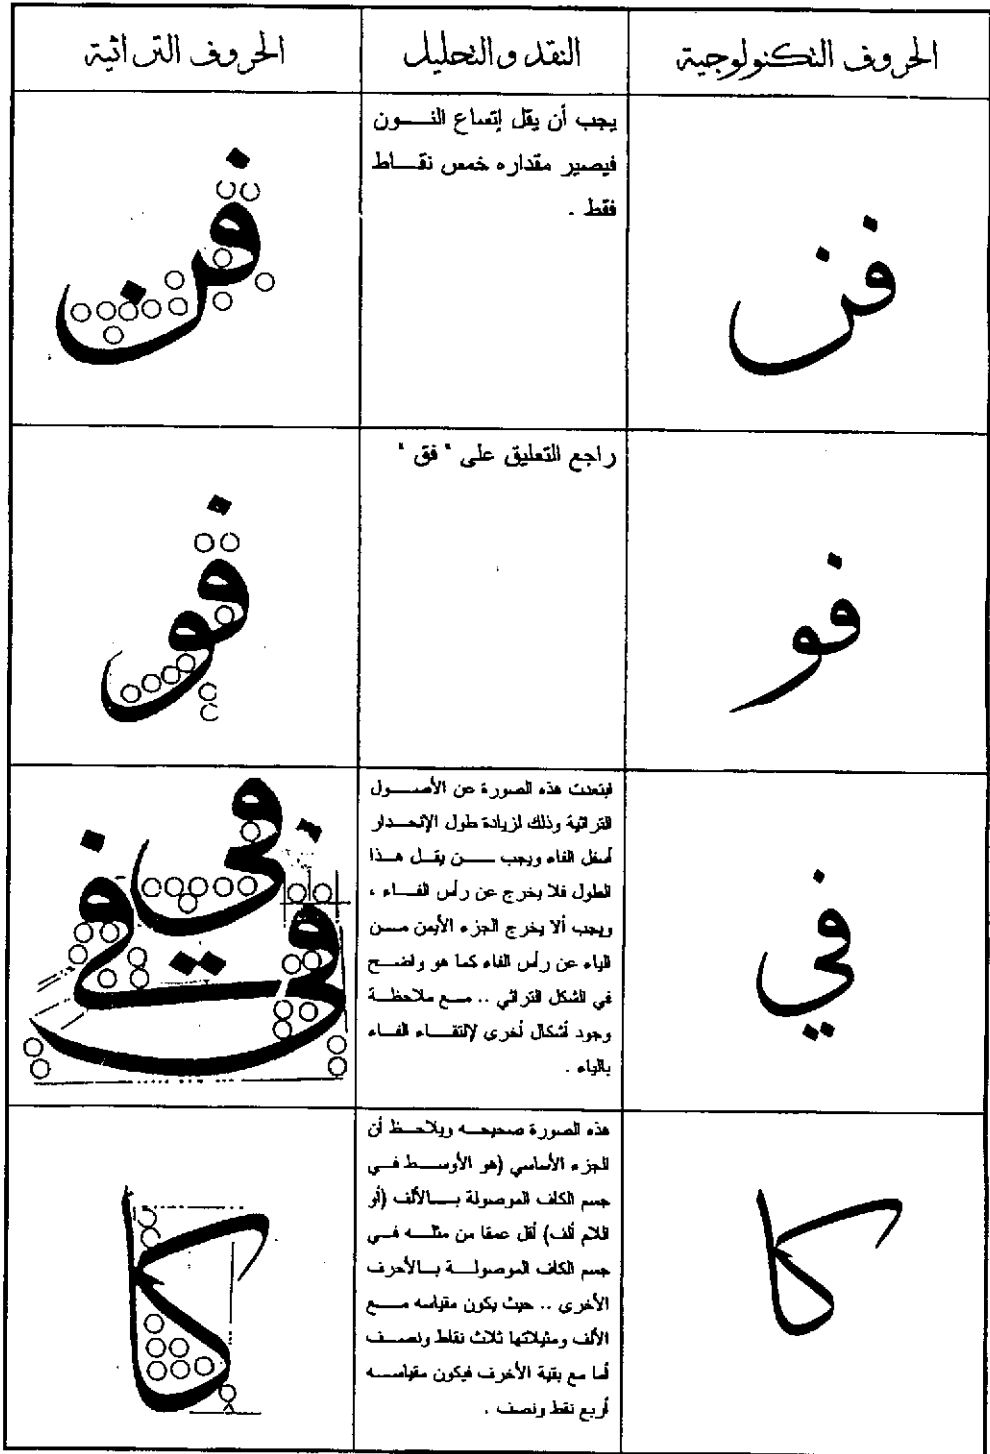 الحروف التكنولوجية
النقد والتحليل
الحروف التراثية
فن
يجب أن يقل إتساع النــون
فيصير مقداره خمس نقــاط
فقط .
فن
فو
راجع التعليق على " فق "
فو
في
فبتعدت هذه الصورة عن الأصــول
التراثية وذلك لزيادة طول الإنحــدار
أسفل الفاء ويجب ــن يقــل هــذا
الطول فلا يخرج عن رأس الفــاء ،
ويجب ألا يخرج الجزء الأيمن مــن
الياء عن رأس الفاء كما هو واضــح
في الشكل التراثي .. مــع ملاحظــة
وجود أشكال أخرى لإلتقــاء الفــاء
بالياء .
في
في
كا
هذه الصورة صحيحــه ويلاحــظ أن
الجزء الأساسي (هو الأوســط فــي
جسم الكاف الموصولة بــالألف (أو
اللام ألف) أقل عمقا من مثلــه فــي
جسم الكاف الموصولــة بــالأحرف
الأخرى .. حيث يكون مقياسه مــع
الألف ومثيلاتها ثلاث نقاط ونصــف
أما مع بقية الأخرف فيكون مقياســه
أربع نقط ونصف .
كا